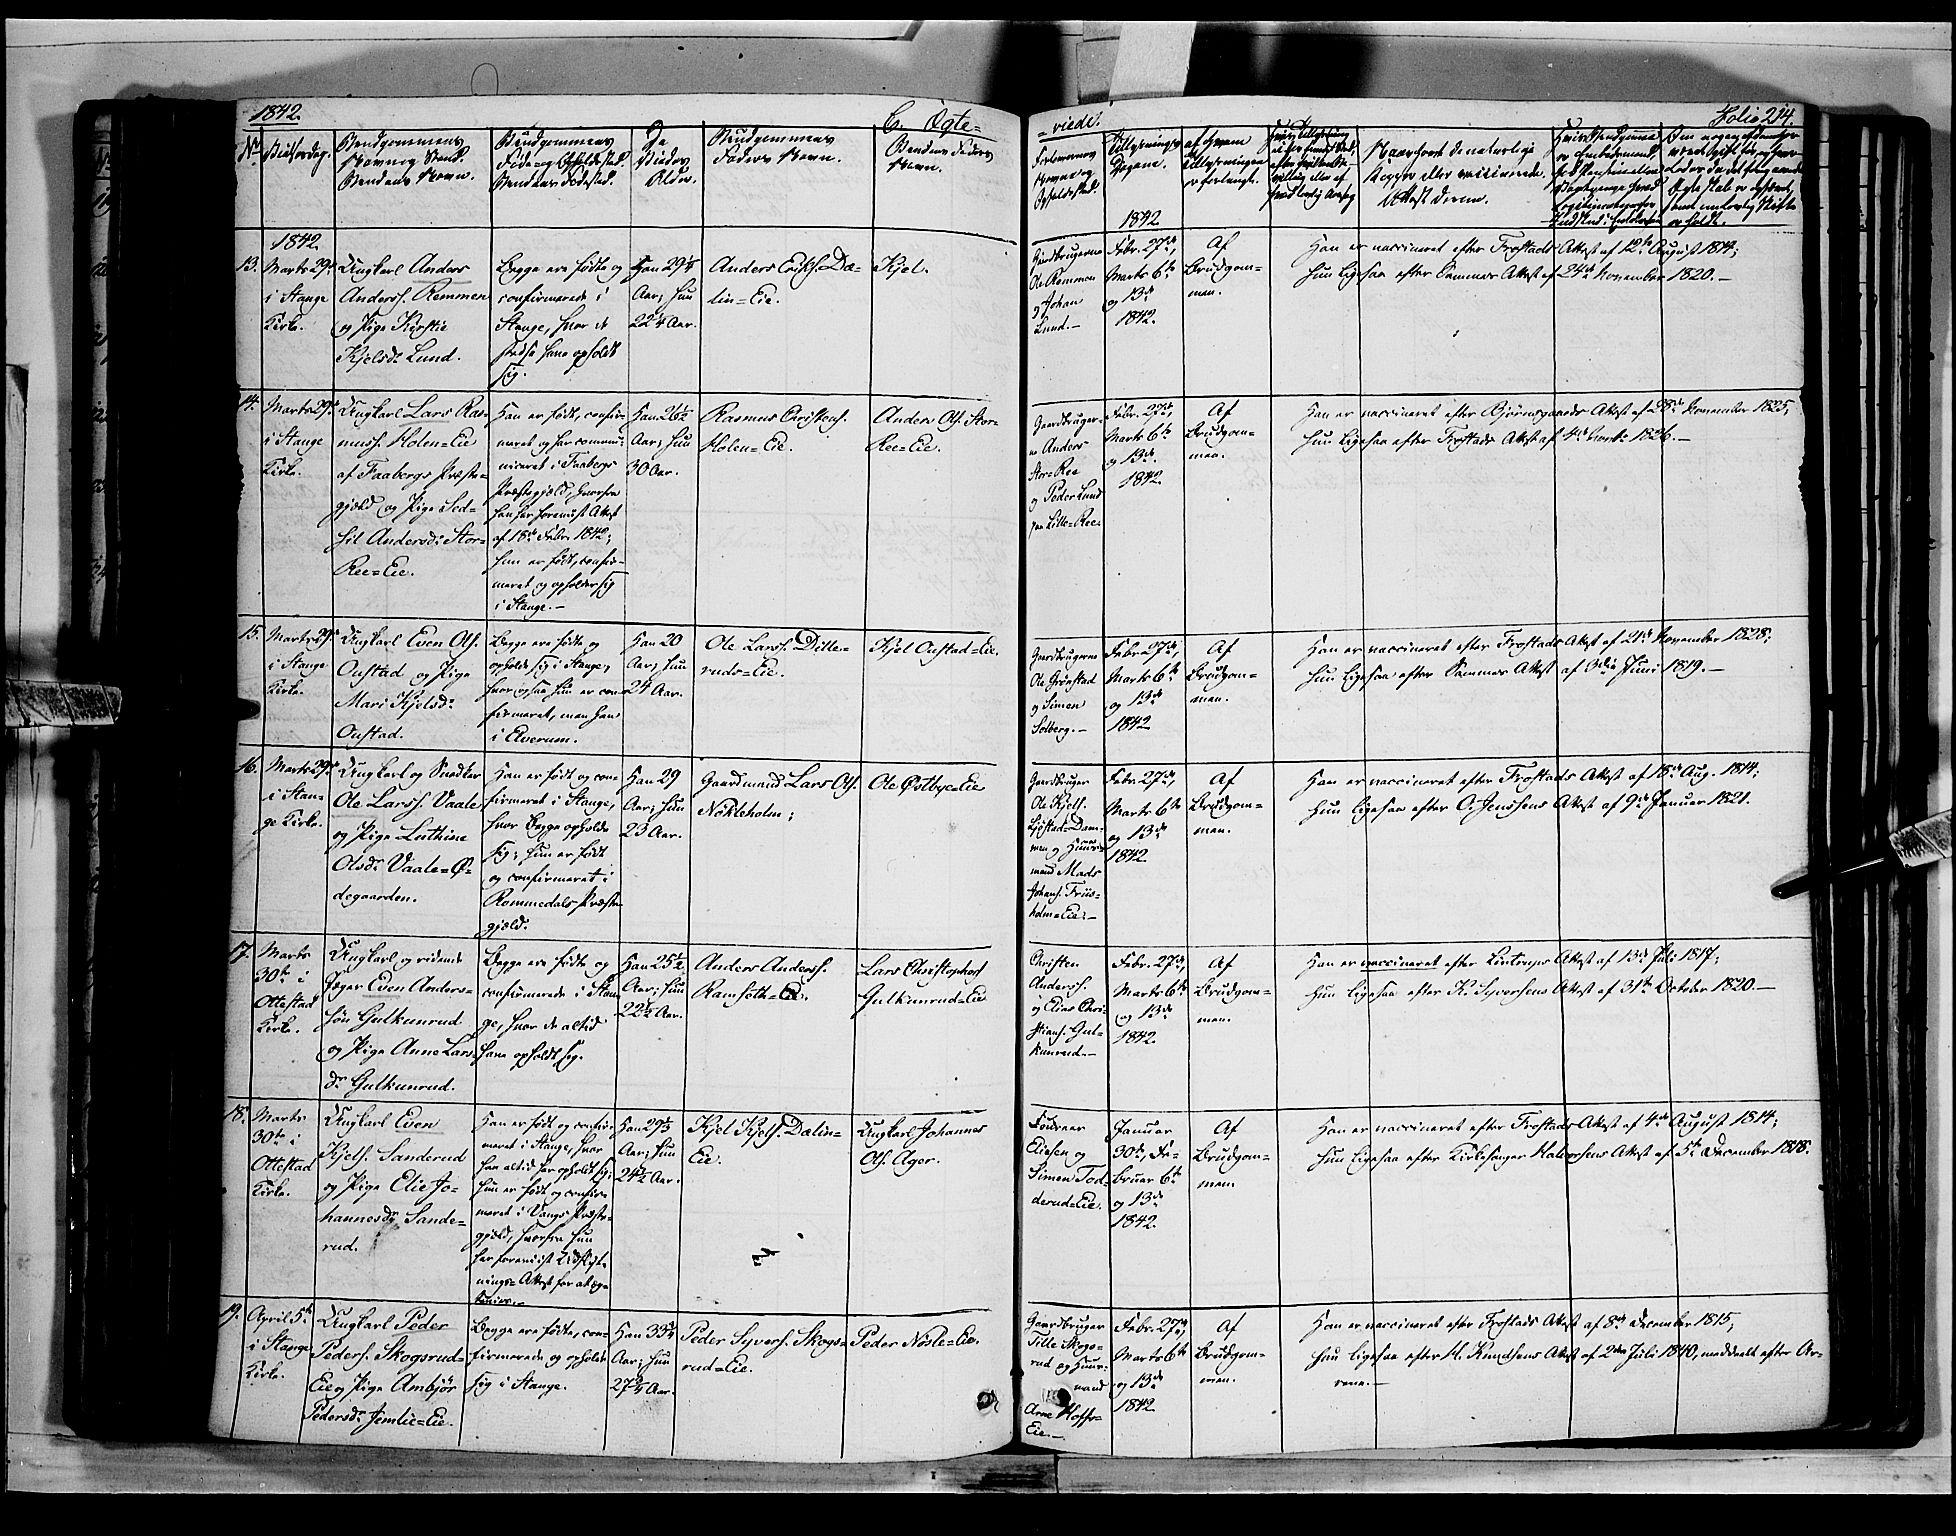 1842.
C. Ægte=
= viede.
Folio 214.
No
Vielsesdag.
Brudgommens
Navn og Stand.
Brudens Navn.
Brudgommens
Føde og Opholdssted.
Brudens Fødested.
De
Viedes
Alder.
Brudgommens
Faders Navn.
Brudens Faders
Navn.
Forlovernes
Navne og
Opholdssted.
Tillysnings
Dagene.
1842
af hvem
Tillysningen
er forlangt.
Naar havt de naturlige
Kopper eller vaccinerede.
Attest derom.
1842.
13.
Marts 29de
i Stange
Kirke.
Ungkarl Anders
Anderss. Remmen
og Pige Kirstie
Kjelsdr Lund.
Begge ere fødte og
confirmerede i
Stange, hvor de
have opholdt
sig.
Han 29 1/4
Aar; hun
22 1/4 Aar.
Anders Eriks. Dæ-
lin=Eie.
Kjel.
Gaardbrugerne
Ole Remmen
og Johan
Lund.-
Febr. 27de,
Marts 6te
og 13de
1842.
Af
Brudgom-
men.
Han er vaccineret efter Frostads Attest af 12te August 1814;
Hun ligesaa efter Sammes Attest af 24de November 1820.-
14.
Marts 29de
i Stange
Kirke.
Ungkarl Lars Ras-
muss. Holen=Eie
af Faabergs Præste-
gjeld og Pige Sed-
sil Andersdr Stor-
Ree=Eie.
Han er født, confir-
meret og har commu-
niceret i Faabergs
Præstegjæld, hvorfra
han har foreviist Attest
af 18de Febr. 1842;
hun er født, confir-
meret og opholder sig
i Stange.-
Han 26 1/2
Aar; hun
30 Aar.
Rasmus Christens.
Holen=Eie.
Anders Ols. Stor-
Ree=Eie.
Gaardbruger-
ne Anders
Stor=Ree
og Peder Lund
paa Lille=Ree.
Febr. 27de,
Marts 6te
og 13de
1842.
Af
Brudgom-
men.
Han er vaccineret efter Bjørnsgaards Attest af 28de November 1825;
hun ligesaa efter Frostads Attest af 4de Marts 1826.-
15.
Marts 29de
i Stange
Kirke.
Ungkarl Even Ols.
Oustad og Pige
Mari Kjelsdr
Oustad.
Begge ere fødte og
opholde sig i Stange,
hvor ogsaa hun er con-
firmeret, men han
i Elverum.
Han 20
Aar; hun
24 Aar.
Ole Larss. Dille-
ruds=Eie.
Kjel Oustad=Eie.
Gaardbrugerne
Ole Grønstad
og Simen
Solberg.-
Febr. 27de,
Marts 6te
og 13de
1842
Af
Brudgom-
men.
Han er vaccineret efter Frostads Attest af 21de November 1828;
hun ligesaa efter Sammes Attest af 3die Juni 1819.-
16.
Marts 29de
i Stan-
ge Kirke.
Ungkarl og Snedker
Ole Larss. Vaale
og Pige Lethine
Olsdr Vaale=Ø-
degaarden.
Han er født og con-
firmeret i Stange,
hvor Begge opholde
sig; hun er født
og confirmeret i
Rommedals Præste-
gjæld.
Han 29
Aar; hun
23 Aar.
Gaardmand Lars Ols.
Nökleholm;
Ole Østbye=Eie
Gaardbruger
Ole Kjels.
Ljøstad=Dam-
men og Huus-
mand Mads
Johans. Friis-
holm=Eie.-
Febr. 27de,
Marts 6te
og 13de
1842
Af
Brudgom-
men.
Han er vaccineret efter Frostads Attest af 18de Aug. 1814;
Hun ligesaa efter O. Jenssens Attest af 9de Januar 1821.
17.
Marts
30te i
Ottestad
Kirke.
Ungkarl og ridende
Jæger Even Anders-
søn Gulkunrud
og Pige Anne Lars
dr Gulkunrud.
Begge ere fødte og
confirmerede i Stan-
ge, hvor de altid
have opholdt sig.
Han 25 1/2
Aar; hun
22 1/2 Aar.
Anders Anderss.
Ramseth=Eie.
Lars Christophers
Gulkunrud=Eie
Christen
Anderss.
og Elias Chri-
stians. Gul-
kunrud.-
Febr. 27de,
Marts 6te
og 13de
1842.
Af
Brudgom-
men.
Han er vaccineret efter Lintrups Attest af 13de Juli 1817;
Hun ligesaa efter K. Syversens Attest af 31te October 1820.-
18.
Marts
30te i
Ottestad
Kirke.
Ungkarl Even
Kjels. Sanderud
og Pige Elie Jo-
hannesdr Sande-
rud.
Han er født og confir-
meret i Stange, hvor
han altid har opholdt sig;
hun er født og confir-
meret i Vangs Præste-
gjæld, hvorfra hun
har foreviist Udflyt-
nings=Attest
Han 29 1/2
Aar; hun
24 1/2 Aar.
Kjel Kjels. Dælin=
Eie.
Ungkarl Johannes
Ols. Ager.
Eliesen og
Simen Tod-
derud=Eie.
Januar
30te, Fe-
bruar 6te
og 13de
1842.
Af
Brudgom-
men.
Han er vaccineret efter Frostads Attest af 4de August 1814;
hun ligesaa efter Kirkesanger Halvorsens Attest af 5te December 1818.
19.
April 5te
i Stange
Kirke.
Ungkarl Peder
Peders. Skogsrud=
Eie og Pige Ambjør
Pedersdr Jemlie=Eie.
Begge ere fødte, con-
firmerede og opholde
sig i Stange.
Han 33 3/4
Aar; hun
27 3/4 Aar.
Peder Syvers. Skogs-
rud=Eie.
Peder Nøsle=Eie.
Gaardbruger
Tille Skogs-
rud og Huus-
mand
Arne Hoffs-
Eie.-
Febr. 27de,
Marts 6te
og 13de
1842.
Af
Brudgom-
men.
Han er vaccineret efter Frostads Attest af 8de December 1815;
hun ligesaa efter H. Knudsens Attest af 2den Juli 1840, meddeelt efter Ar-
rene.-